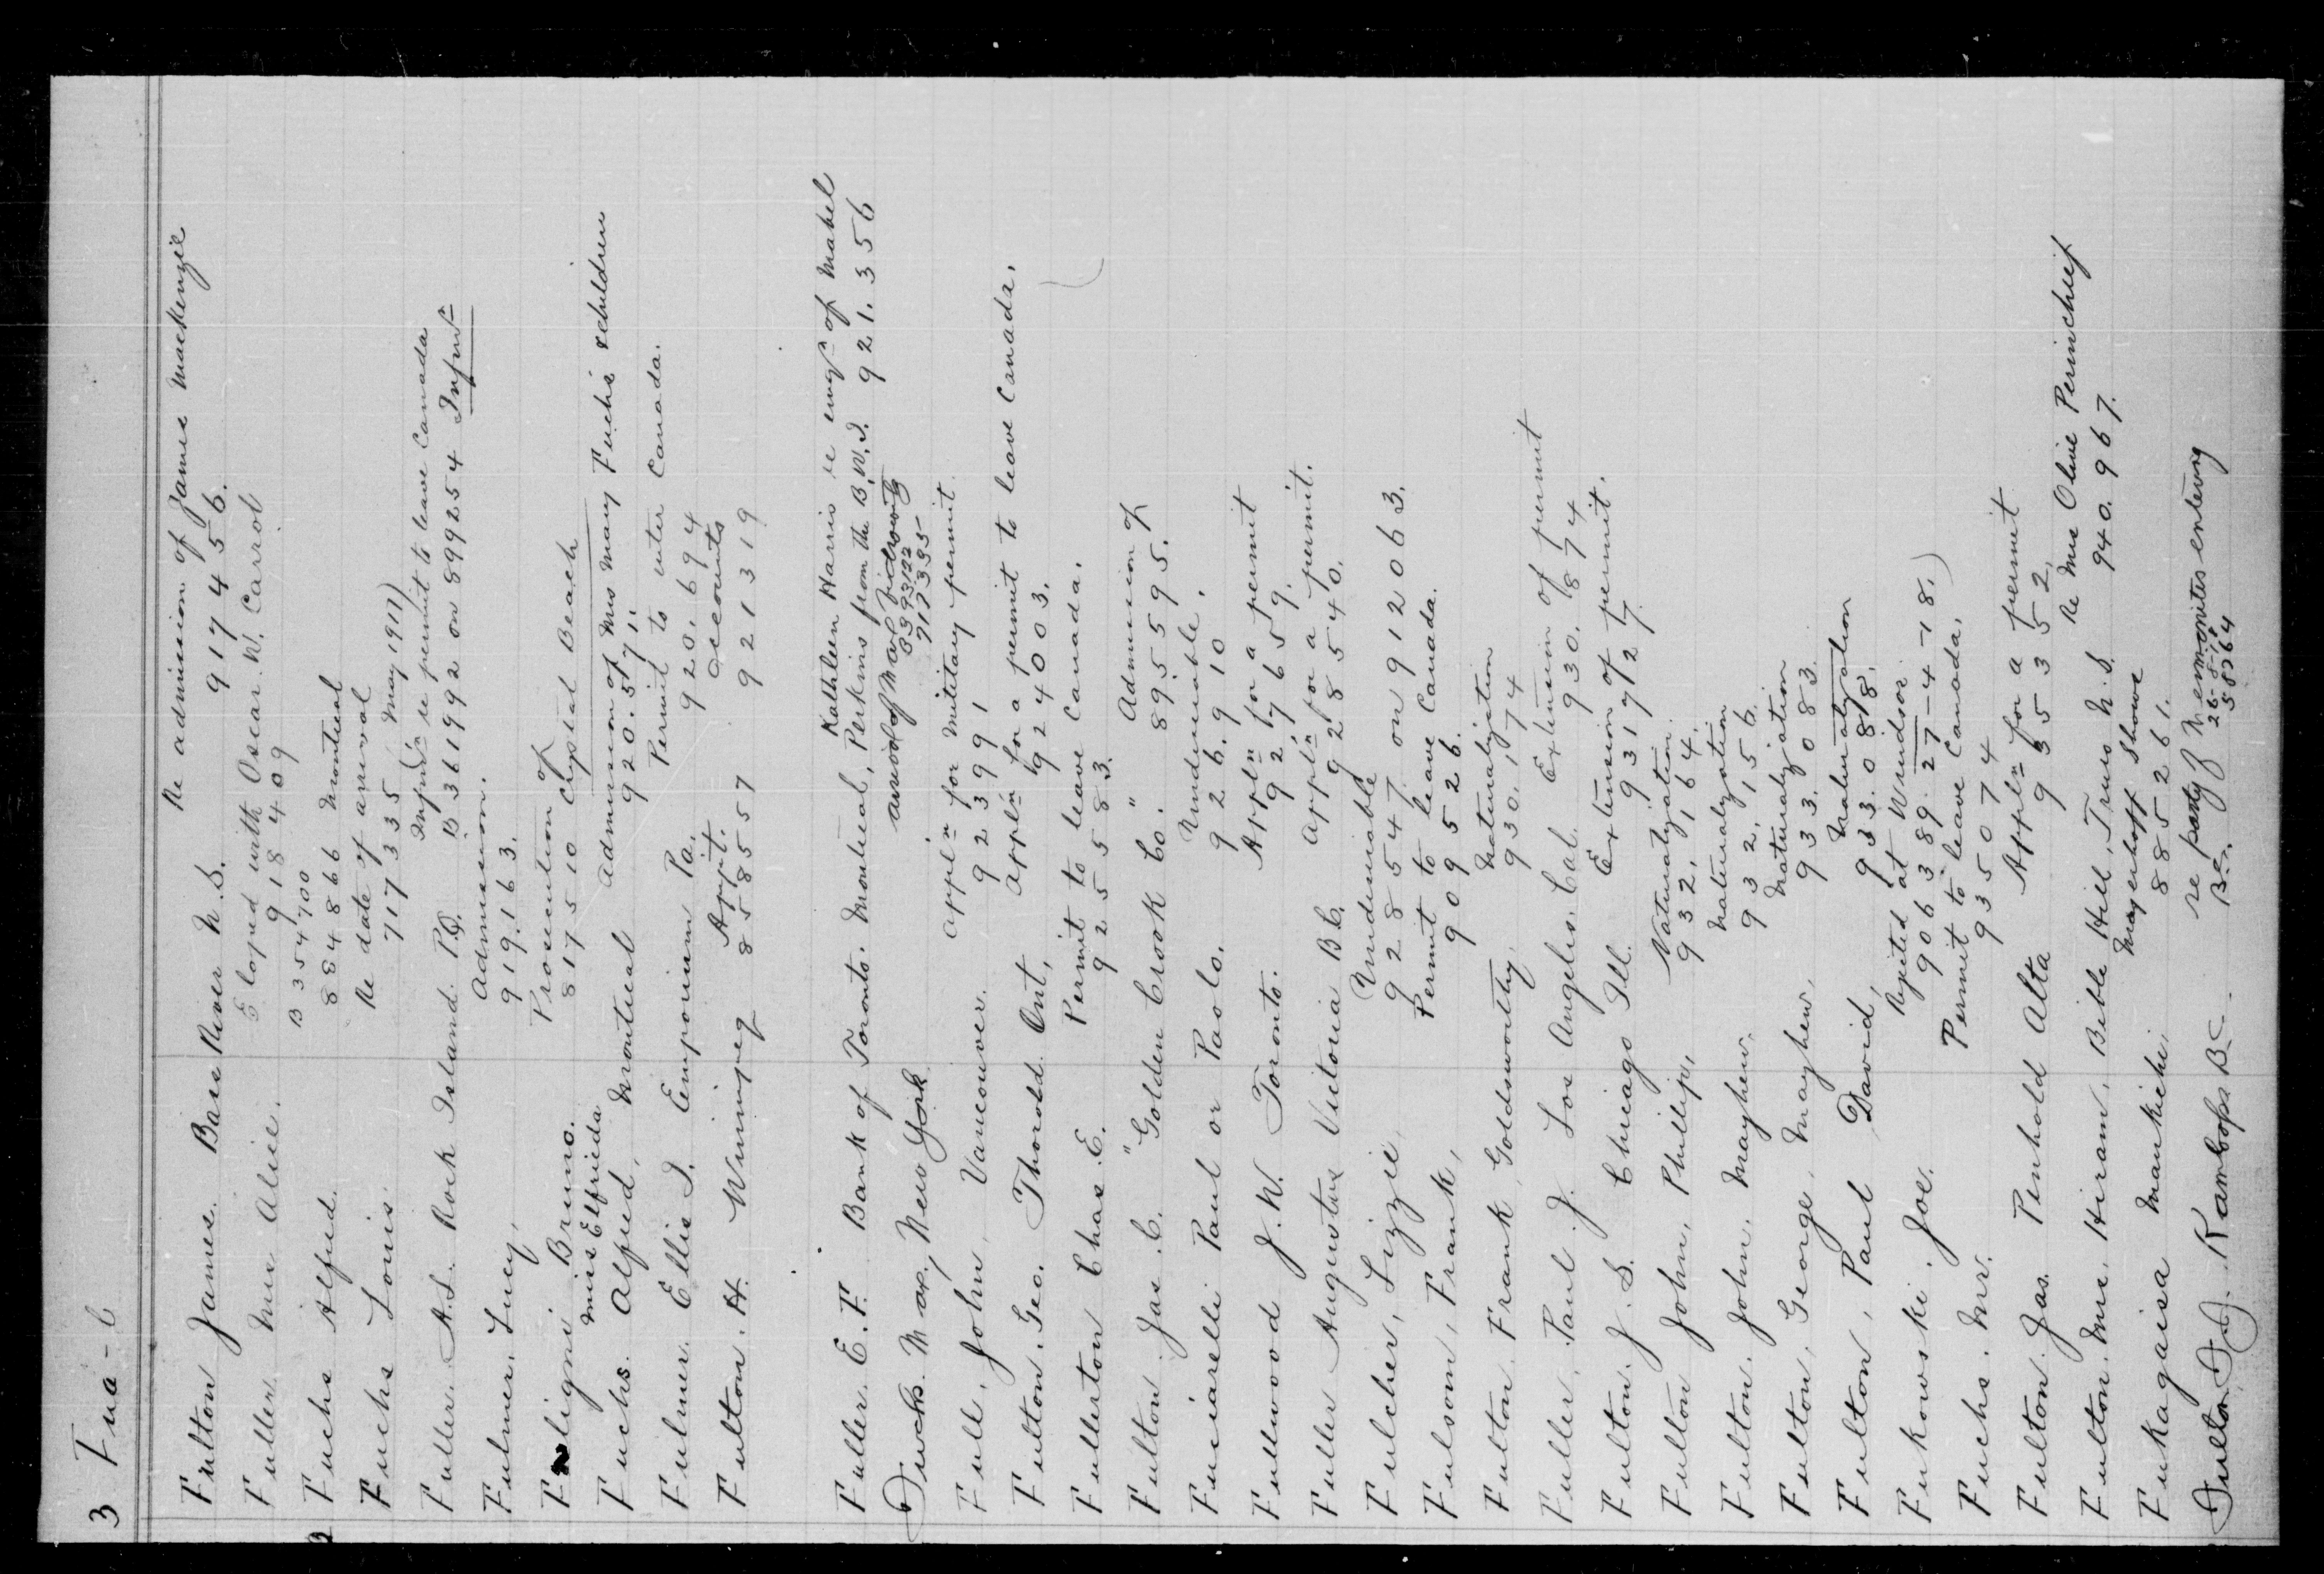 3 Fua - l
Fulton James. Bass River N.S. Re admission of James Mackenzie
917456.
Fuller. Mrs Alice. Eloped with Oscar. W. Carrol
918409
B 354700
Fuchs Alfred. 884866 Montreal
Fuchs Louis. Re date of arrival
717335 (May 1917)
re permit to leave Canada
Fuller. A.L. Rock Island. P.Q. B 361992 on 899254
Fulmer. Lucy, Admission.
919.163.
Fuligni Bruno. Prosecution of
Miss Elfrieda 817510 Crystal Beach
Fuchs. Alfred, Montreal Admission of Mrs Mary Fuchs & children
920.571.
Fulmer. Ellis I. Emporium Pa. Permit to enter Canada.
920.694
Fulton. H. Winnipeg Appt. accounts
858557 921319
Kathleen Harris re of Mabel
Fuller. E.F. Bank of Toronto. Montreal, Perkins from the B.W.I. 921.356
Fuchs. Max, New York arrival of Max
717335
Full, John, Vancouver. Appln for military permit
923991
Fulton. Geo. Thorold Ont, Appln for a permit to leave Canada.
924003.
Fullerton Chas. E. Permit to leave Canada.
925583.
Fulton. Jas. C. "Golden Crook Co. " Admission of
895595.
Funciarelli Paul or Paolo. Undesirable.
926.910
Fullwood J.W. Toronto. Appln for a permit
927659.
Fuller Augustus Victoria B.C. Appln for a permit.
928540.
Fulcher, Lizzie, Undesirable
928547 on 912063.
Fulsom, Frank, Permit to leave Canada.
909526.
Fulton. Frank Goldsworthy, Naturalization
930.174
Fuller. Paul. J. Los Angeles. Cal. Extension of permit
930.874
Fulton. J.S. Chicago Ill. Extension of permit.
931727.
Fulton John, Phillip, Naturalization.
932,164.
Fulton. John. Mayhew. Naturalization
932,156.
Fulton. George, Mayhew, Naturalization
933.083.
Fulton, Paul David, Naturalization
933.0818.
Fukowski. Joe. Rejected at Windsor.
906389. 27-4-18.)
Fuchs. Mr. Permit to leave Canada.
935074
Fulton. Jas. Penhold Alta Appln for a permit
935352.
Fulton. Mrs. Hiram, Bible Hill, Truro N.S. Re Mrs Olive Perinchief
940.967.
Fukagaisa Mankichi. Mayerhoff Showe
885261.
Fulton F.J. Kamloops BC. re party of Mennonites entering
BC. 58764